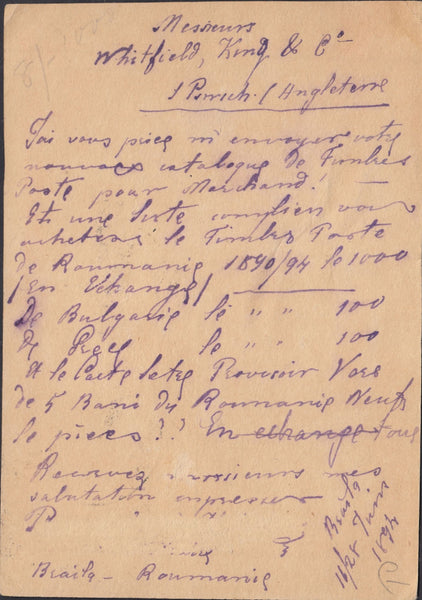 Messieurs
Whitfield, King & Co
Ipswich / Angleterre
J'ai vous m'envoyer votre
nouveaux catalogue de Timbres
Poste pour Marchand!
Et une liste combien vous
achetera le Timbre Poste
de Roumanie 1890/94 le 1000
/ En Echange /
De Bulgarie le " " 100
de le " " 100
Et le Carte letre Provisoir Vose
de 5 Bani du Roumanie Neufs
le pieces?? En echange tous
Recevez messieurs mes
salutation
Braila - Roumanie
Braila
16/28 Juin
1894